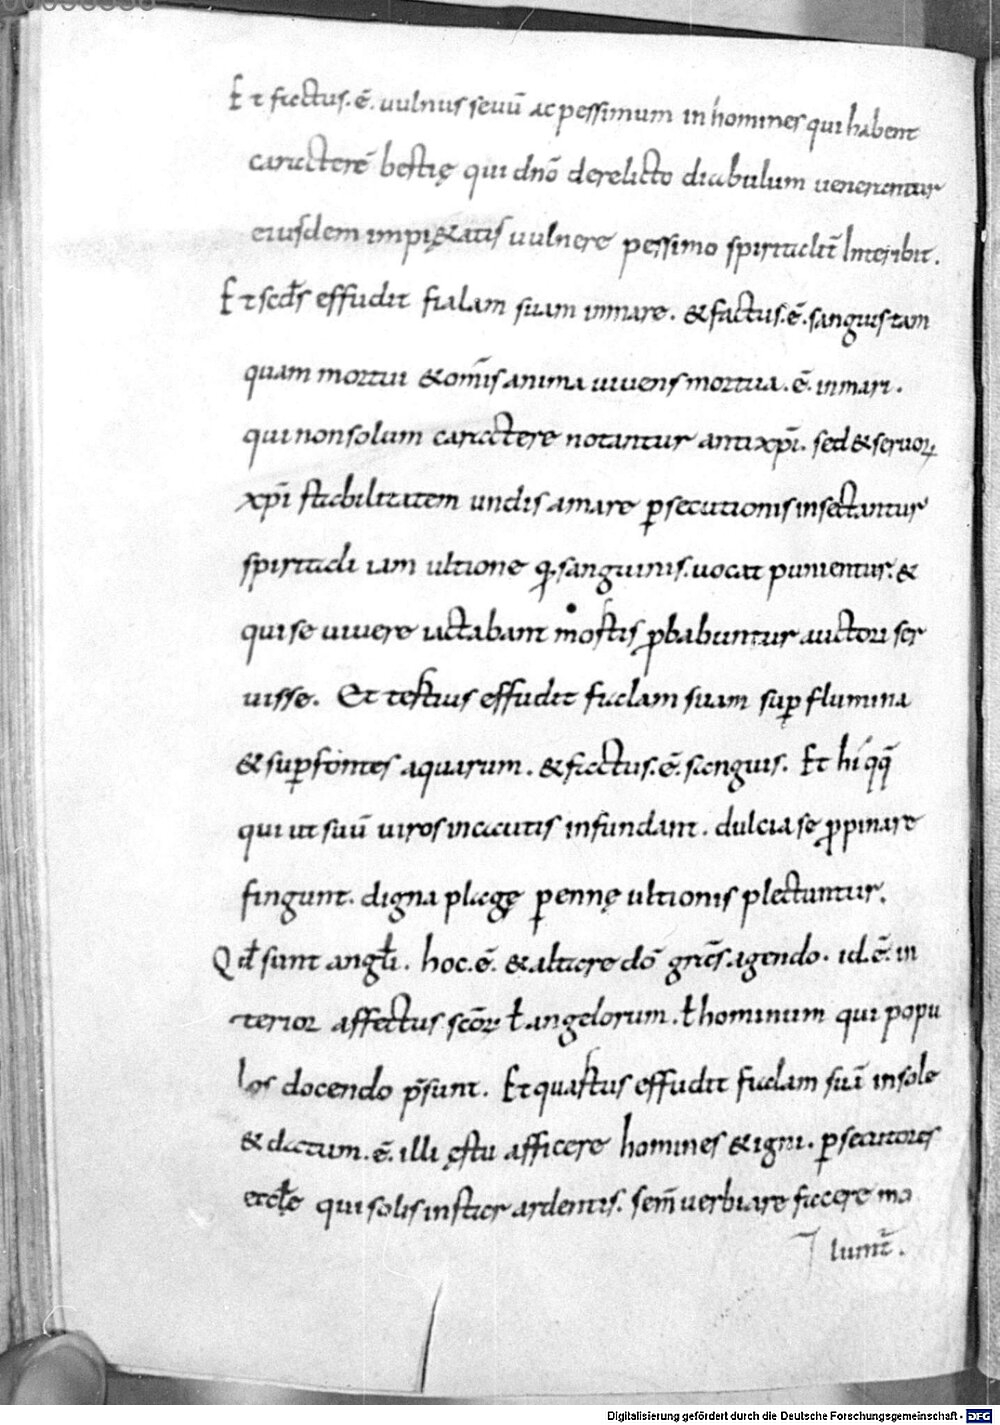 Et factus. ē. uulnus seuū ac pessimum in homines qui habent
caracterē bestię qui dnō derelicto diabulum uenerantur
eiusdem impi&atis uulnere pessimo spiritalit̄ Interibit.
Et scds̄ effudit fialam suam inmare. & factus. ē. sanguis tam
quam mortui & omīs anima uiuens mortua. ē. inmari.
qui nonsolum caractere notantur antixp̄i. sed & seruoꝝ
xp̄i stabilitatem undis amare ꝑsecutionis insectantur
spiritali iam ultione q̄ sanguinis. uocat punientur. &
qui se uiuere iactabant mostis ꝓbabuntur auctori ser
uisse. Et tertius effudit fialam suam suꝑ flumina
& suꝑ fontes aquarum. & factus. ē. sanguis. Et hi qq̄
qui ut suū uiros incautis infundant. dulcia se ꝓpinare
fingunt. digna plagę ꝑennę ultionis plectuntur.
Qd̄ sunt angłi. hoc. ē. & altare dō grc̄s. agendo. id. ē. in
terior affectus scōꝝ ł angelorum. ł hominum qui popu
los docendo p̄sunt. Et quartus effudit fialam suā insole
& datum. ē. illi ęstu afficere homines & igni. ꝑsecutores
eccłe qui solis instar ardentis. sem̄ uerbi are facere mo
lunt̄.